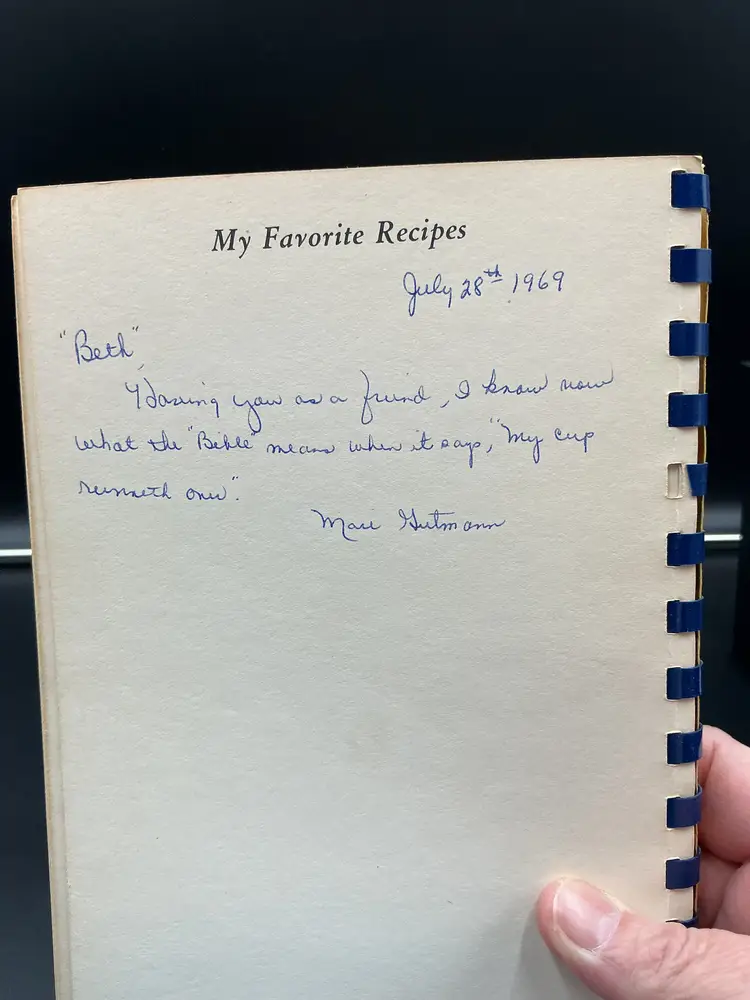 My Favorite Recipes
July 28th 1969
"Beth",
Having you as a friend, I know now
what the "Bible" means when it says, "My cup
runneth over".
Marie Gutmann